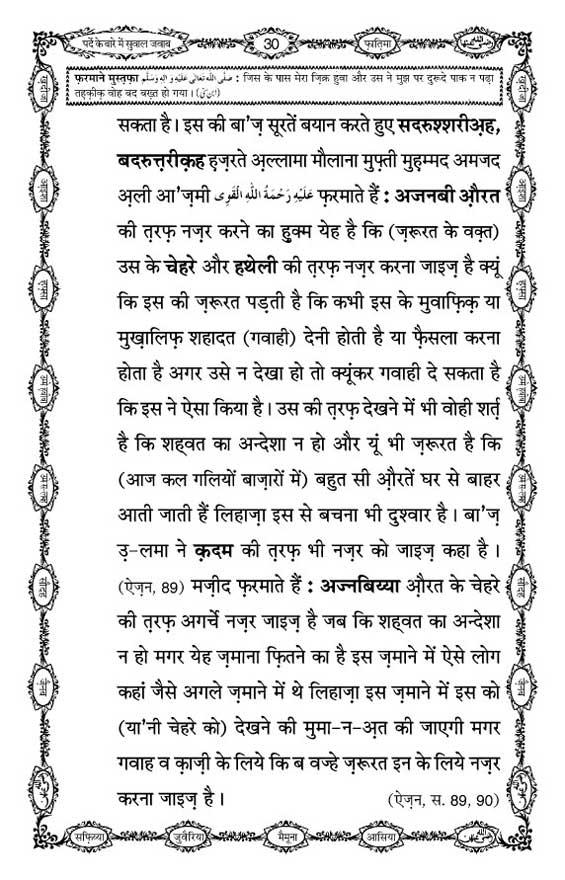 पर्दे के बारे में सुवाल जवाब
30
फ़ातिमा
फ़रमाने मुस्तफ़ा صَلَّى اللّٰهُ تَعَالٰى عَلَيْهِ وَاٰلِهٖ وَسَلَّم : जिस के पास मेरा ज़िक्र हुवा और उस ने मुझ पर दुरूदे पाक न पढ़ा
तह़क़ीक़ वोह बद बख़्त हो गया। (ابن سنی)
सकता है। इस की बा'ज़ सूरतें बयान करते हुए सदरुश्शरीअ़ह,
बदरुत़्त़रीक़ह ह़ज़रते अ़ल्लामा मौलाना मुफ़्ती मुह़म्मद अमजद
अ़ली आ'ज़मी عَلَيْهِ رَحْمَةُ اللّٰهِ الْقَوِى फ़रमाते हैं : अजनबी औ़रत
की त़रफ़ नज़र करने का हुक्म येह है कि (ज़रूरत के वक़्त)
उस के चेहरे और हथेली की त़रफ़ नज़र करना जाइज़ है क्यूं
कि इस की ज़रूरत पड़ती है कि कभी इस के मुवाफ़िक़ या
मुख़ालिफ़ शहादत (गवाही) देनी होती है या फ़ैसला करना
होता है अगर उसे न देखा हो तो क्यूंकर गवाही दे सकता है
कि इस ने ऐसा किया है। उस की त़रफ़ देखने में भी वोही शर्त़
है कि शह्वत का अन्देशा न हो और यूं भी ज़रूरत है कि
(आज कल गलियों बाज़ारों में) बहुत सी औ़रतें घर से बाहर
आती जाती हैं लिहाज़ा इस से बचना भी दुश्वार है। बा'ज़
उ़-लमा ने क़दम की त़रफ़ भी नज़र को जाइज़ कहा है।
(ऐज़न, 89) मज़ीद फ़रमाते हैं : अज्नबिय्या औ़रत के चेहरे
की त़रफ़ अगर्चे नज़र जाइज़ है जब कि शह्वत का अन्देशा
न हो मगर येह ज़माना फ़ितने का है इस ज़माने में ऐसे लोग
कहां जैसे अगले ज़माने में थे लिहाज़ा इस ज़माने में इस को
(या'नी चेहरे को) देखने की मुमा-न-अ़त की जाएगी मगर
गवाह व क़ाज़ी के लिये कि ब वज्हे ज़रूरत इन के लिये नज़र
करना जाइज़ है।
(ऐज़न, स. 89, 90)
सफ़िय्या
जुवैरिया
मैमूना
आसिया